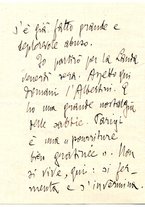 s'è già fatto grande e
deplorevole abuso.
Io partirò per la
venerdì sera. Aspetto qui
domani l'Albertini. E
ho una grande nostalgia
delle sabbie. Parigi
è una « pourriture
bien ». Non
si vive, qui: si fer-
menta e s'invermina.